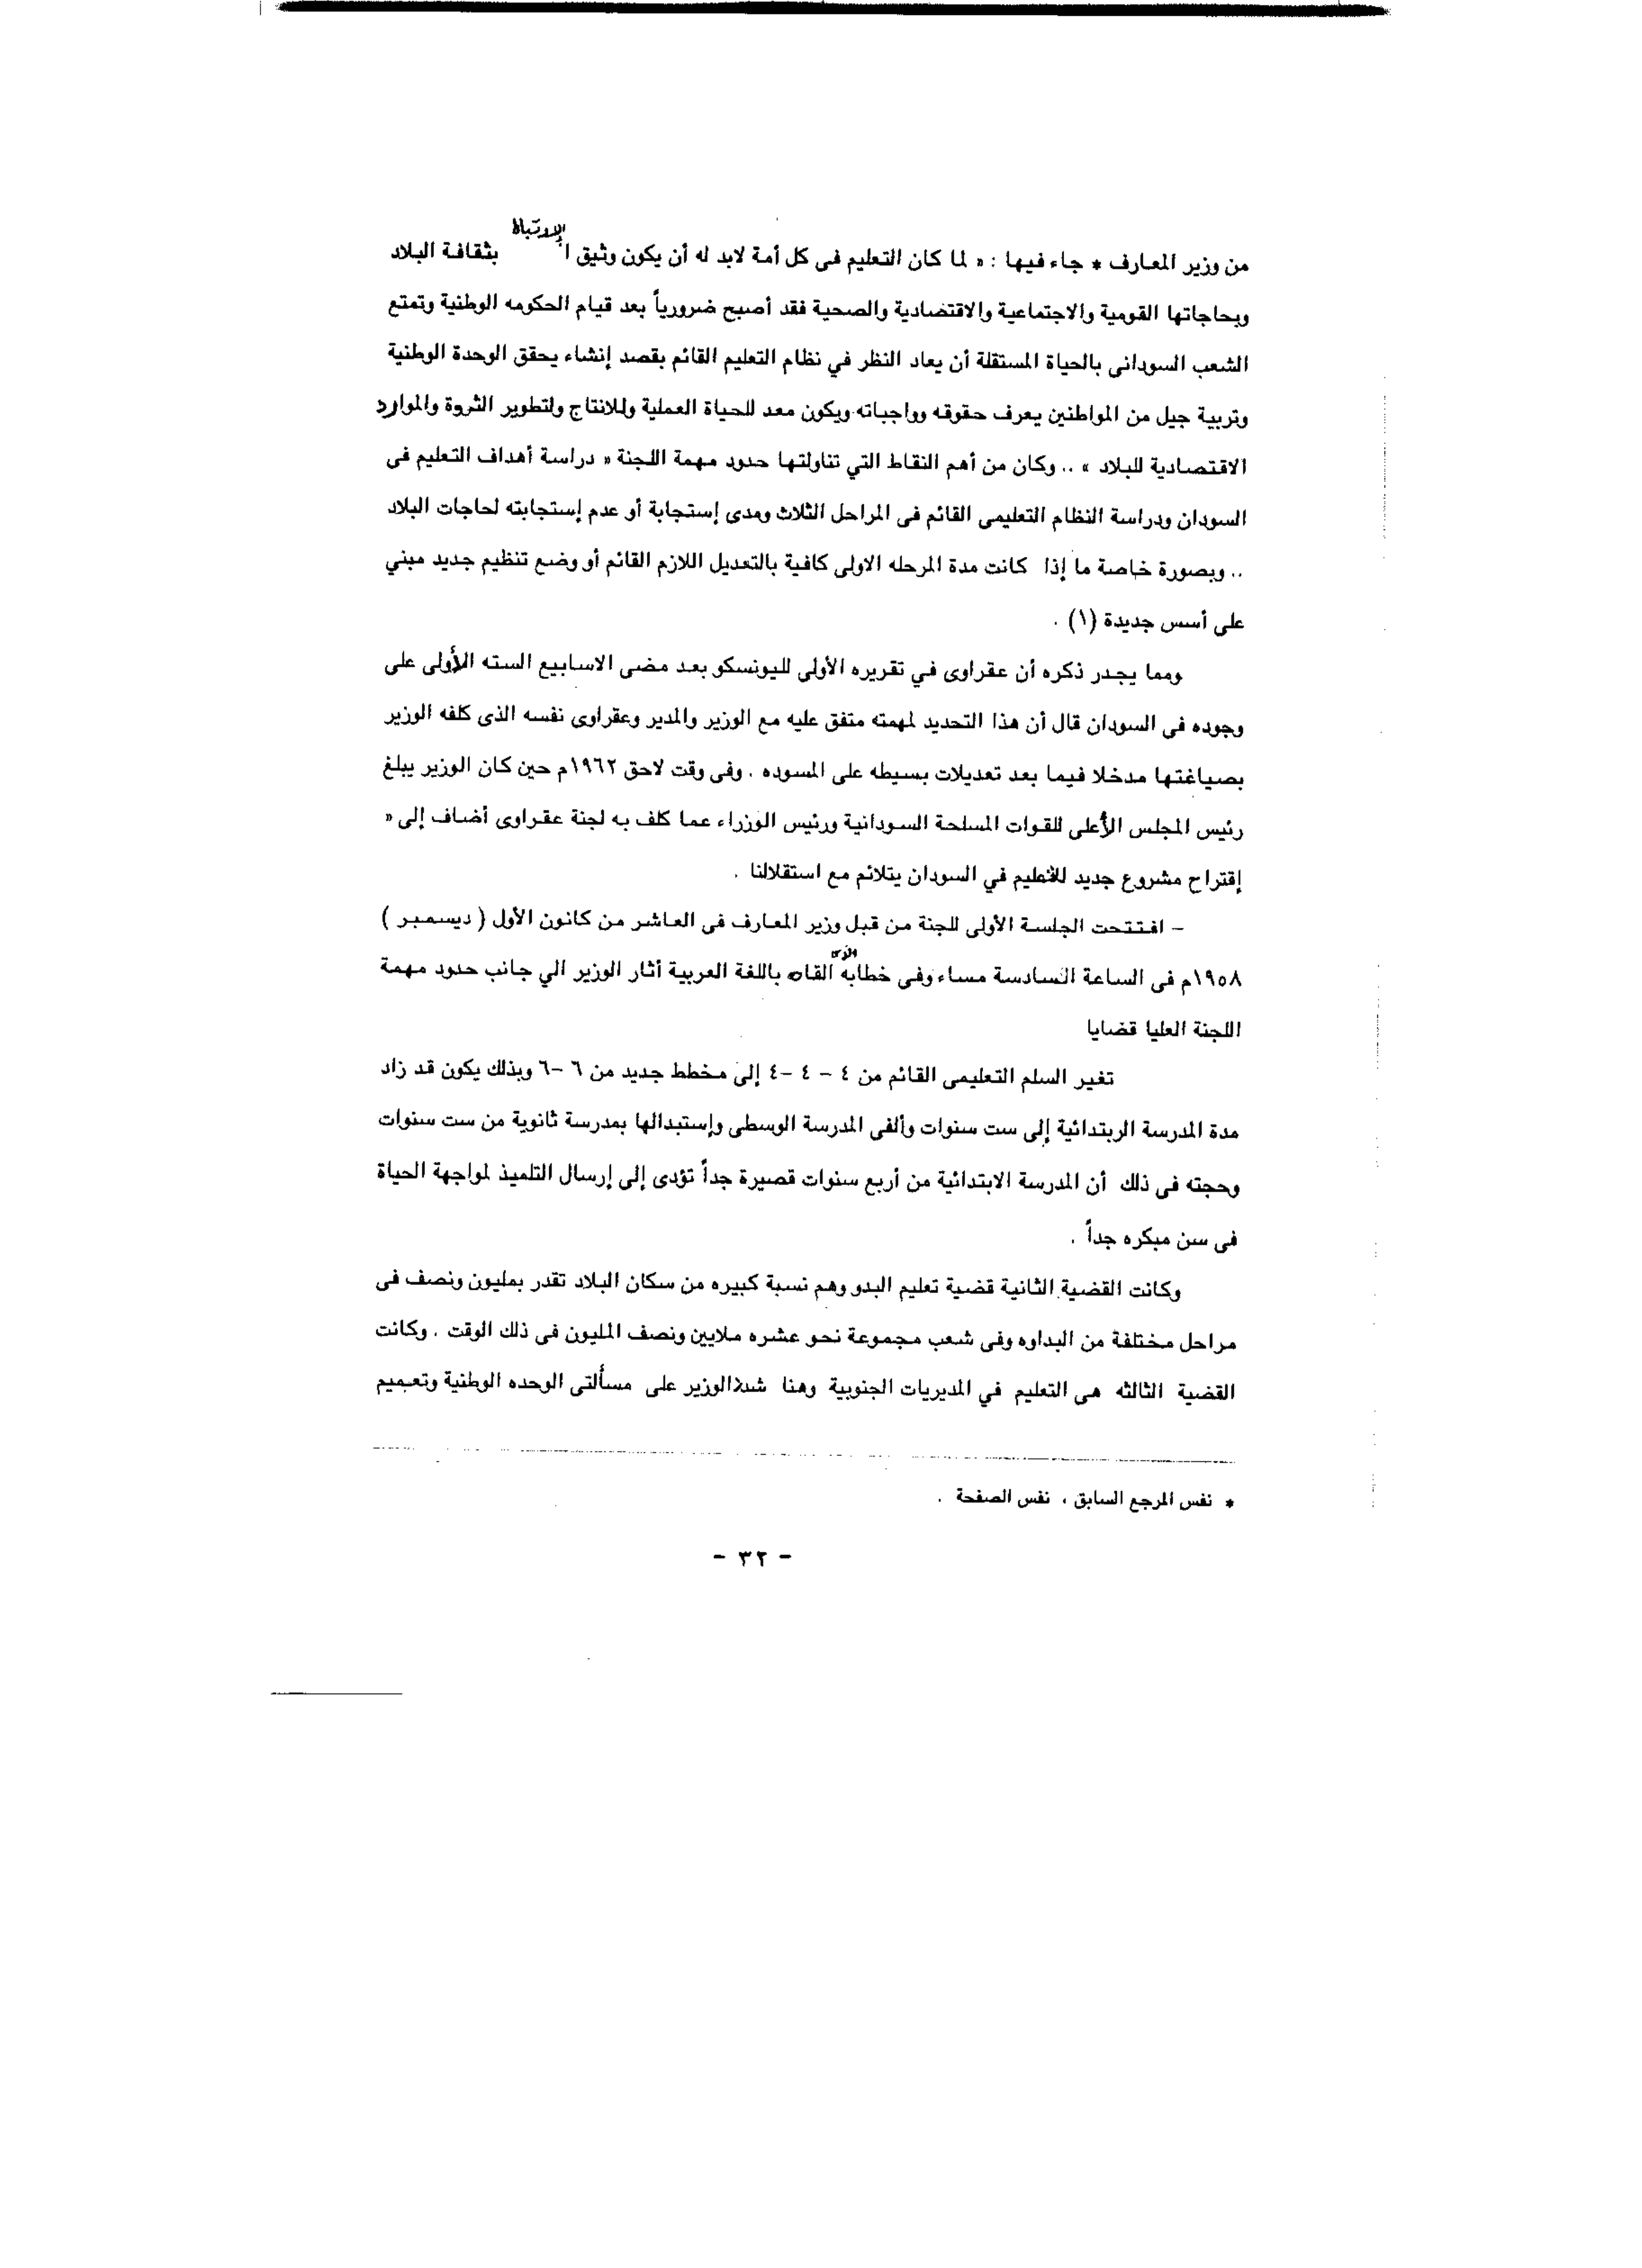 من وزير المعارف * جاء فيها : « لما كان التعليم فى كل أمة لابد له أن يكون وثيق الإرتباط بثقافة البلاد
وبحاجاتها القومية والاجتماعية والاقتصادية والصحية فقد أصبح ضرورياً بعد قيام الحكومه الوطنية وتمتع
الشعب السودانى بالحياة المستقلة أن يعاد النظر في نظام التعليم القائم بقصد إنشاء يحقق الوحدة الوطنية
وتربية جيل من المواطنين يعرف حقوقه وواجباته ويكون معد للحياة العملية وللانتاج ولتطوير الثروة والموارد
الاقتصادية للبلاد » .. وكان من أهم النقاط التي تناولتها حدود مهمة اللجنة « دراسة أهداف التعليم فى
السودان ودراسة النظام التعليمى القائم فى المراحل الثلاث ومدى إستجابة أو عدم إستجابته لحاجات البلاد
.. وبصورة خاصة ما إذا كانت مدة المرحله الاولى كافية بالتعديل اللازم القائم أو وضع تنظيم جديد مبني
على أسس جديدة (١) .
ومما يجدر ذكره أن عقراوى في تقريره الأولى لليونسكو بعد مضى الاسابيع السته الأولى على
وجوده فى السودان قال أن هذا التحديد لمهمته متفق عليه مع الوزير والمدير وعقراوى نفسه الذى كلفه الوزير
بصياغتها مدخلا فيما بعد تعديلات بسيطه على المسوده . وفى وقت لاحق ١٩٦٢م حين كان الوزير يبلغ
رئيس المجلس الأعلى للقوات المسلحة السودانية ورئيس الوزراء عما كلف به لجنة عقراوى أضاف إلى «
إقتراح مشروع جديد للتعليم في السودان يتلائم مع استقلالنا .
– افتتحت الجلسة الأولى للجنة من قبل وزير المعارف فى العاشر من كانون الأول ( ديسمبر )
١٩٥٨م فى الساعة السادسة مساء وفى خطابه الذى القاه باللغة العربية أثار الوزير الي جانب حدود مهمة
اللجنة العليا قضايا
تغير السلم التعليمى القائم من ٤ – ٤ –٤ إلى مخطط جديد من ٦ –٦ وبذلك يكون قد زاد
مدة المدرسة الربتدائية إلى ست سنوات وألفى المدرسة الوسطى وإستبدالها بمدرسة ثانوية من ست سنوات
وحجته فى ذلك أن المدرسة الابتدائية من أربع سنوات قصيرة جداً تؤدى إلى إرسال التلميذ لمواجهة الحياة
فى سن مبكره جداً .
وكانت القضية الثانية قضية تعليم البدو وهم نسبة كبيره من سكان البلاد تقدر بمليون ونصف فى
مراحل مختلفة من البداوه وفى شعب مجموعة نحو عشره ملايين ونصف المليون فى ذلك الوقت . وكانت
القضية الثالثه هى التعليم في المديريات الجنوبية وهنا شدد الوزير على مسألتى الوحده الوطنية وتعميم
* نفس المرجع السابق ، نفس الصفحة .
– ٣٢ –